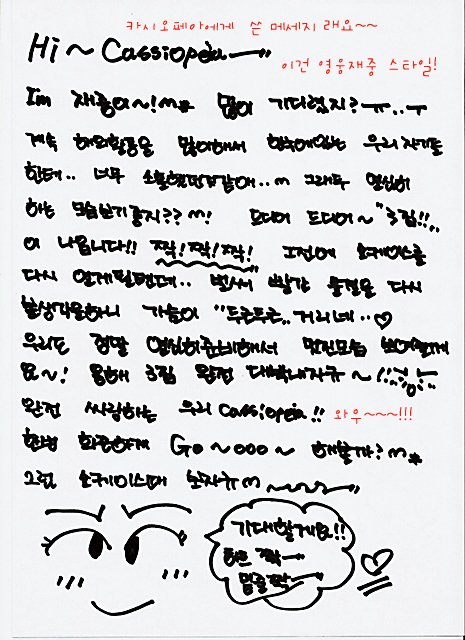 카시오페아에게 쓴 메세지 래요~~
Hi ~ Cassiopeia
이건 영웅재중 스타일!
I'm 재중이~!m* 많이 기다렸지?ㅠ..ㅜ
계속 해외활동을 많이해서 한국에있는 우리 자기들
한테.. 너무 소홀했던거같애..m 그래두 열심히
하는 모습보기좋지??m! 드디어 드디어~ "3집!!..
이 나옵니다!! 짝!짝!짝! 그전에 쇼케이스로
다시 만나게될텐데.. 벌써 빨간 물결을 다시
볼생각을하니 가슴이 "두근두근..거리네..♡
우리도 정말 열심히준비해서 멋진모습 보여줄게
요~! 올해 3집 완전 대박내자규~!!
완전 싸랑하는 우리 Cassiopeia!! 와우~~~!!!
한번 화끈하게 Go~ooo~ 해볼까?m*
그럼 쇼케이스때 보자규m~
기대할게요!!
하트 짝
밑줄 짝
♡